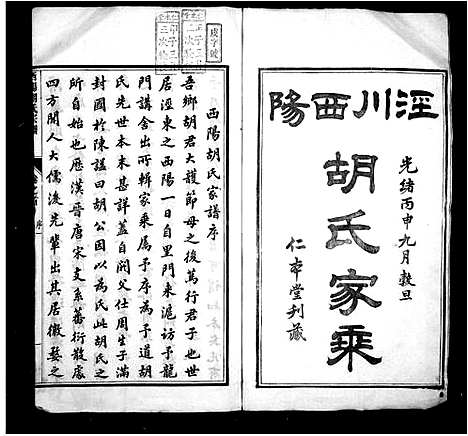 涇川西陽
胡氏家乘
光緒丙申九月穀旦
仁本堂刊藏
西陽胡氏家譜序
吾鄉胡君大護節母之後篤行君子也世
居涇東之西陽一日自里門東滬訪予龍
門講舍出所輯家乘屬予序為予道胡
氏先世本末甚詳蓋自閼父仕周生子滿
封國於陳諡曰胡公因以為氏此胡氏之
所自始也歷漢晉唐宋支系蕃衍散處
四方聞人大儒後先輩出其居徽婺之